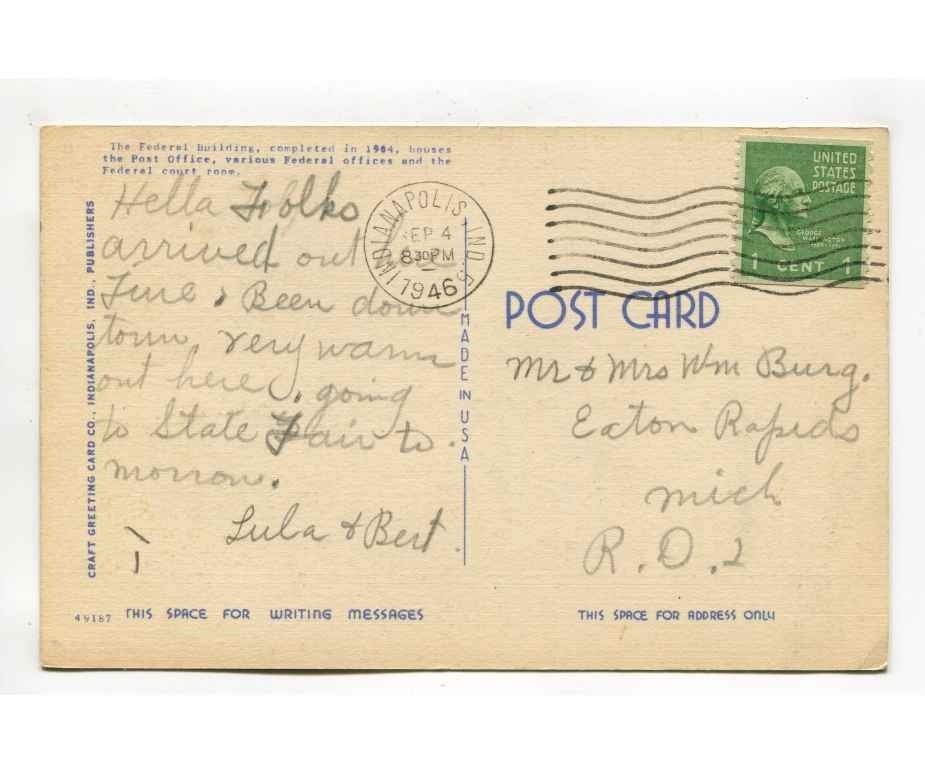 The Federal Building, completed in 1904, houses
the Post Office, various Federal offices and the
Federal court room.
Hella Folks
arrived out
Fine, Been down
town, very warm
out here, going
to State Fair to
morrow.
Lula & Bert.
CRAFT GREETING CARD CO., INDIANAPOLIS, IND., PUBLISHERS
49187 THIS SPACE FOR WRITING MESSAGES
MADE IN USA
INDIANAPOLIS, IND.
SEP 4
8 30 PM
1946
UNITED
STATES
POSTAGE
GEORGE
WASHINGTON
1 CENT 1
POST CARD
Mr & Mrs Wm Burg.
Eaton Rapids
Mich
R.D.2
THIS SPACE FOR ADDRESS ONLY